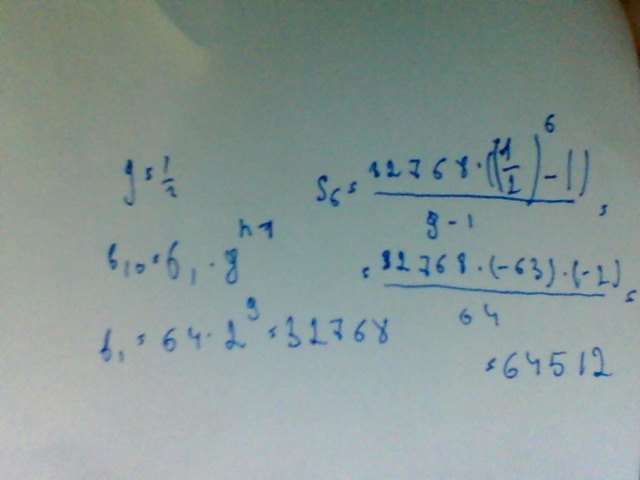 g = 1/2
b₁₀ = b₁ · g^(n-1)
b₁ = 64 · 2^9 = 32768
S₆ = 32768 · ((1/2)^6 - 1) / (g - 1) =
= 32768 · (-63) · (-2) / 64 =
= 64512